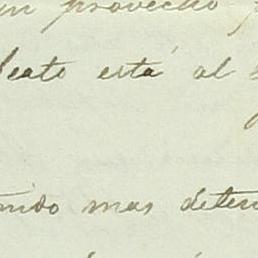 un provecho
leato está al
ando mas deten